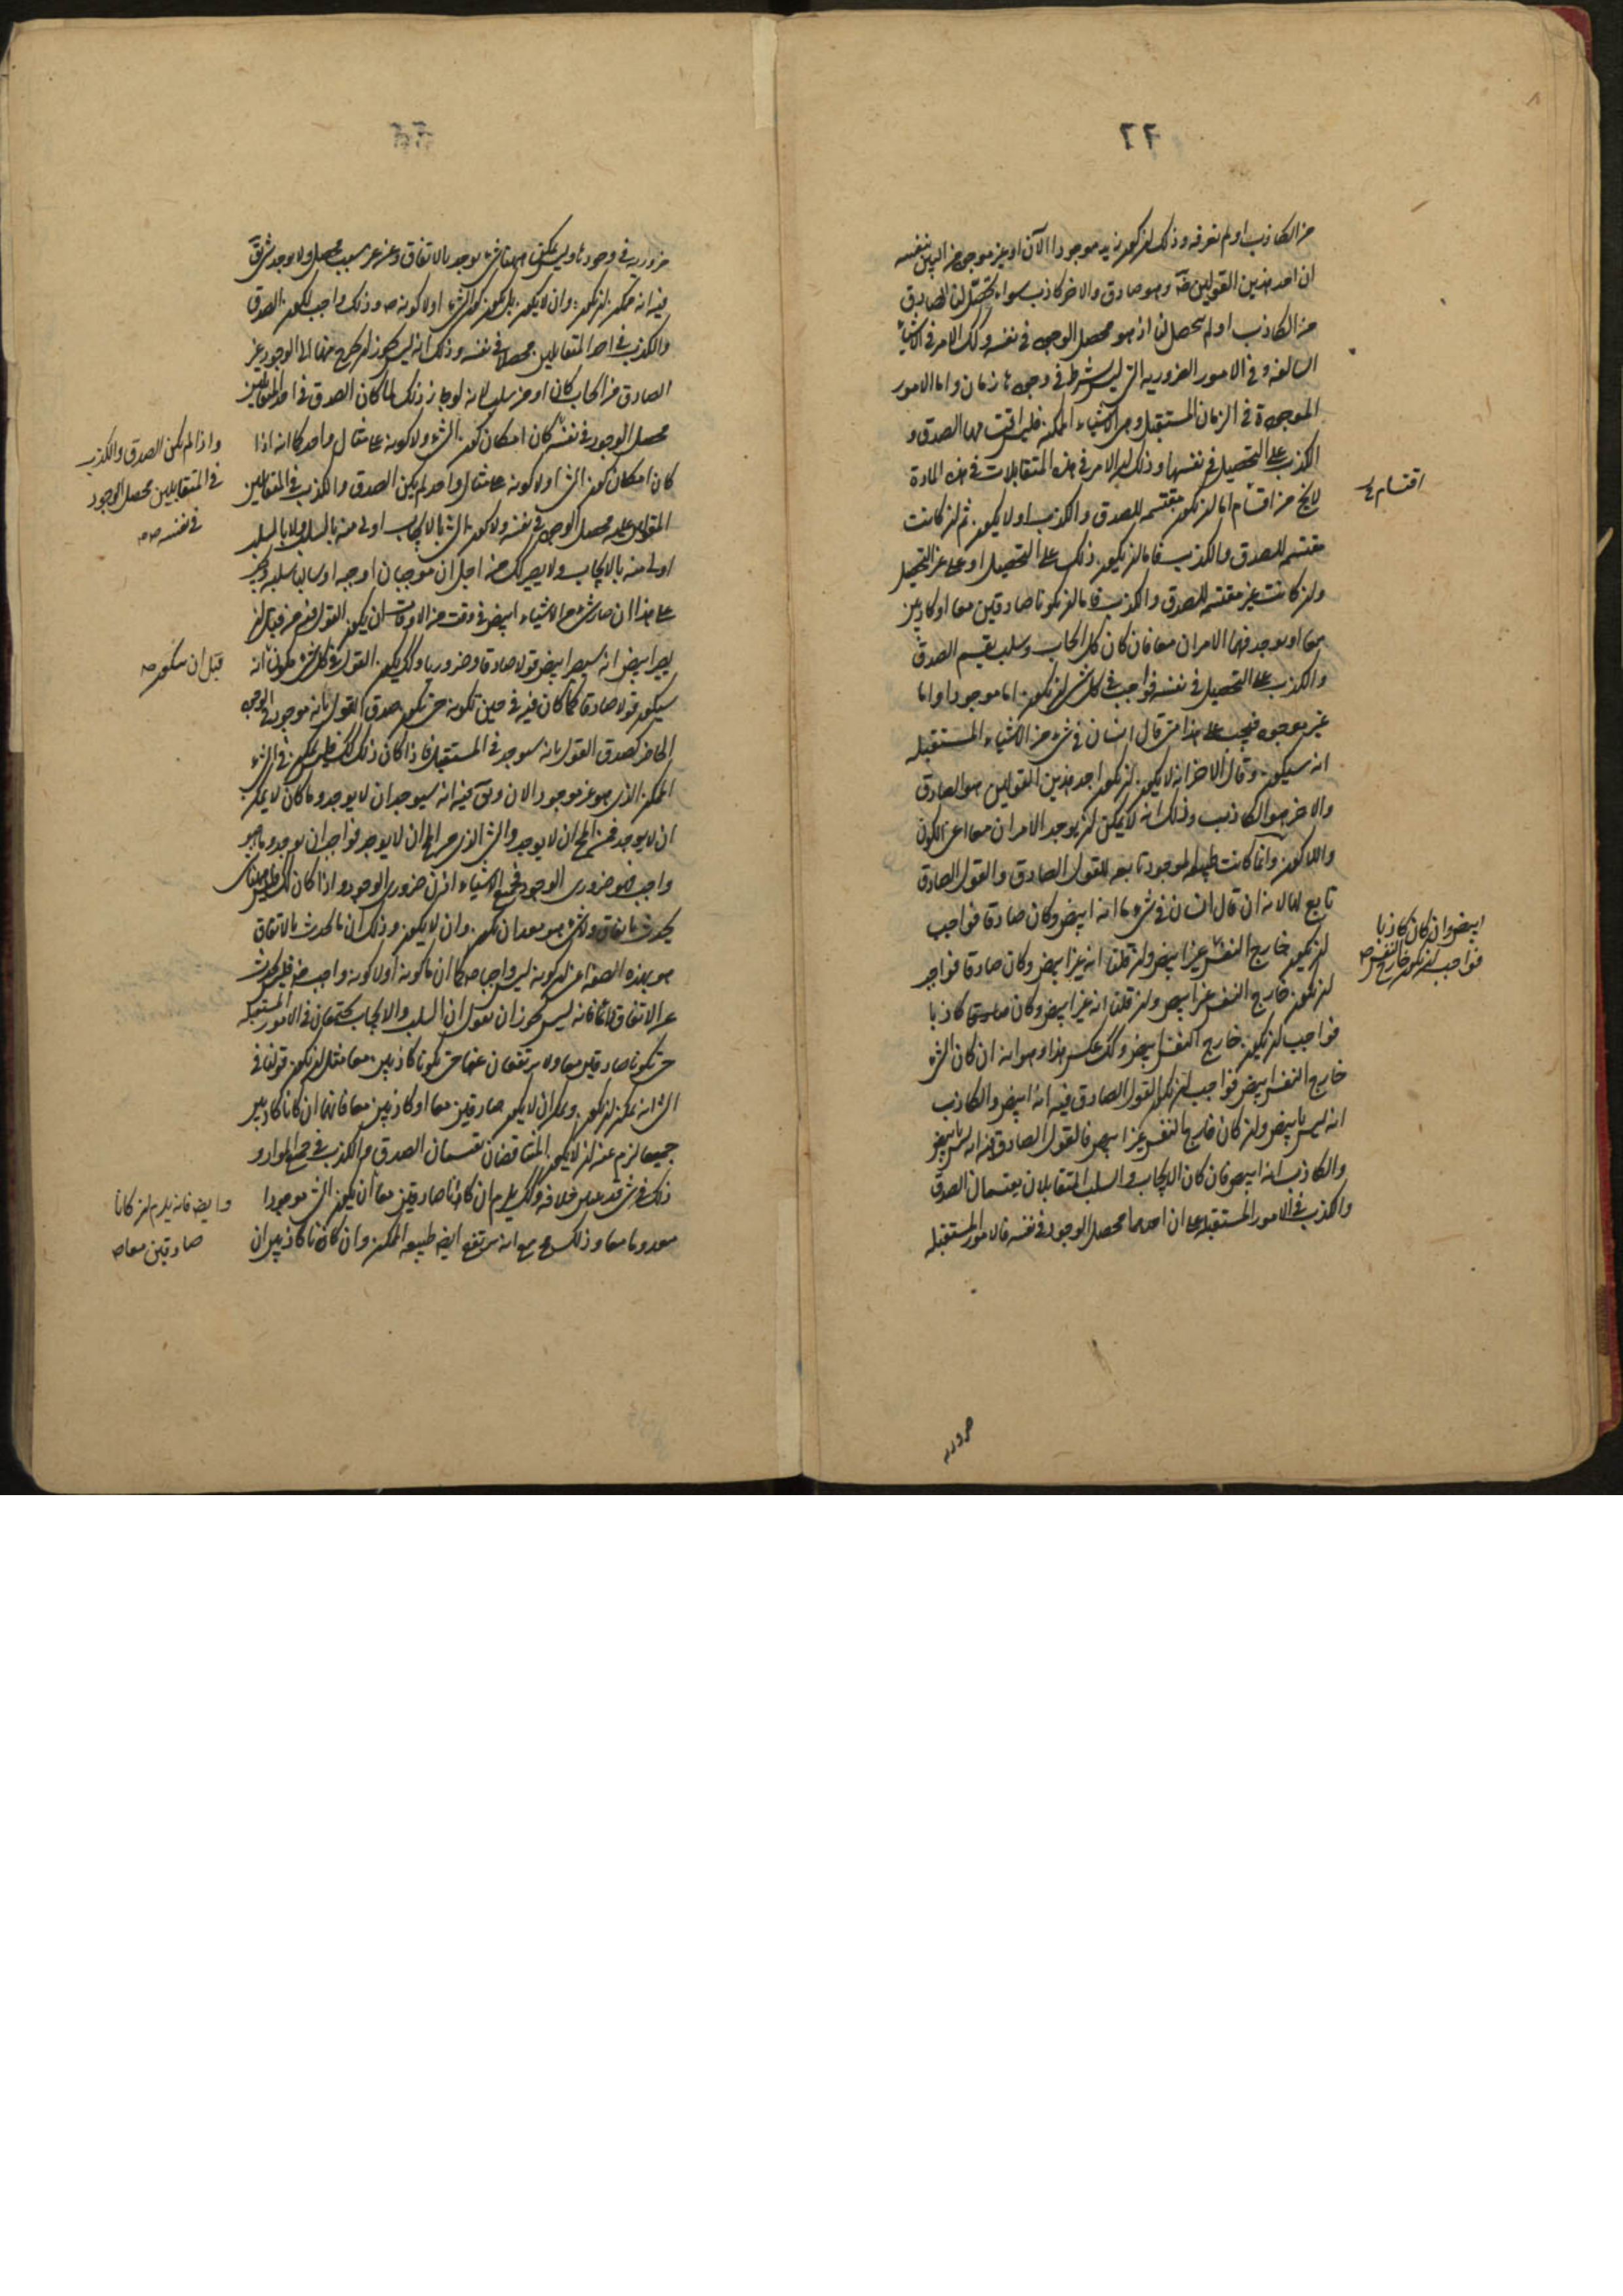 ٦٦
من الكاذب او لم نعرفه وذلك ان كون زيد موجودا الآن او غير موجود من البين بنفسه
ان احد هذين القولين فيه هو صادق والاخر كاذب سواء تحصل لنا الصادق
من الكاذب او لم يتحصل لنا اذ هو محصل الوجود في نفسه وكذلك الامر في الاشياء
السالفة وفي الامور الضرورية التي ليس يشترط في وجودها زمان واما الامور
الموجودة في الزمان المستقبل وهي الاشياء الممكنة فليس اقتسامها الصدق و
الكذب على التحصيل في نفسها وذلك ان الامر في هذه المتقابلات في هذه المادة
لا يخ من اقسام اما ان تكون مقتسمة للصدق والكذب او لا يكون ثم ان كانت
مقتسمة للصدق والكذب فاما ان يكون ذلك على التحصيل او على غير التحصيل
وان كانت غير مقتسمة للصدق والكذب فاما ان يكونا صادقين معا او كاذبين
معا او يوجد فيها الامران معا فان كان كل ايجاب وسلب يقتسم الصدق
والكذب على التحصيل في نفسه فواجب في كل شيء ان يكون اما موجودا واما
غير موجود فيجب على هذا متى قال انسان في شيء من الاشياء المستقبلة
انه سيكون وقال الاخر انه لا يكون ان يكون احد هذين القولين هو الصادق
والاخر هو الكاذب وذلك انه لا يمكن ان يوجد الامران معا اعني الكون
واللاكون وانما كانت طبيعة الموجود تابعة للقول الصادق والقول الصادق
تابع لها لانه ان قال انسان في شيء ما انه ابيض وكان صادقا فواجب
ان يكون خارج النفس غير ابيض وان قلنا انه غير ابيض وكان صادقا فواجب
ان يكون خارج النفس غير ابيض وان قلنا انه غير ابيض وكان صادقا كاذبا
فواجب ان يكون خارج النفس ابيض وكذلك عكس هذا وهو انه ان كان الشيء
خارج النفس ابيض فواجب ان يكون القول الصادق فيه انه ابيض والكاذب
انه ليس بابيض وان كان خارج النفس غير ابيض فالقول الصادق فيه انه ليس بابيض
والكاذب انه ابيض فان كان الايجاب والسلب المتقابلان يقتسمان الصدق
والكذب في الامور المستقبلة على ان احدهما محصل الوجود في نفسه فالامور المستقبلة
اقتسام
ابيض وان كان كاذبا
فواجب ان يكون خارج النفس
ضرورية
ضرورية في وجودها وليس يمكن ههنا شيء يوجد بالاتفاق وعن غير سبب محصل ولا يوجد شيء
فيه انه ممكن ان يكون وان لا يكون بل يكون كون الشيء او لا كونه وذلك واجب لكون الصدق
والكذب في احد المتقابلين محصلا في نفسه وذلك انه ليس يجوز ان يخرج منها الى الوجود غير
الصادق من ايجاب كان او من سلب لانه لو جاز ذلك لما كان الصدق في احد المتقابلين
محصل الوجود في نفسه كان امكان كون الشيء ولا كونه على مثال واحد كما انه اذا
كان امكان كون الشيء او لا كونه على مثال واحد لم يكن الصدق والكذب في المتقابلين
محصل الوجود في نفسه ولا كون الشيء بالايجاب اولى منه بالسلب ولا بالسلب
اولى منه بالايجاب ولا يصير كذلك من اجل ان موجبا اوجبه او سالبا سلبه
على هذا ان صار شيء من الاشياء ابيض في وقت من الاوقات ان يكون القول فيه من قبل ان
يصير ابيض انه سيصير ابيض قولا صادقا وضروريا وكذلك يكون القول في كل شيء يكون انه
سيكون قولا صادقا كما كان فيه في حين تكونه حتى يكون صدق القول بانه موجود في الوجود
الحاضر كصدق القول بانه سيوجد في المستقبل فاذا كان ذلك كذلك فليس يمكن في الشيء
الممكن الذي هو غير موجود الان انه سيوجد ان لا يوجد وما كان لا يمكن
ان لا يوجد فمن المح ان لا يوجد والشيء الذي من المح ان لا يوجد فواجب ان يوجد وما هو
واجب فهو ضروري الوجود فجميع الاشياء اذن ضرورية الوجود واذا كان كذلك فليس هناك
يحدث باتفاق ولا شيء هو معد ان يكون وان لا يكون وذلك ان ما يحدث بالاتفاق
هو بهذه الصفة اعني ان كونه ليس واجبا كما ان ما كونه او لا كونه واجب فليس يحدث
عن الاتفاق فانه ليس يجوز ان نقول ان السلب والايجاب يجتمعان في الامور المستقبلة
حتى يكونا صادقين معا ولا يرتفعان عنها حتى يكونا كاذبين معا مثل ان يكون قولنا في
الشيء انه يمكن ان يكون ويمكن ان لا يكون صادقين معا او كاذبين معا فانهما ان كانا كاذبين
جميعا لزم عنه ان لا يكون المتناقضان يقتسمان الصدق والكذب في جميع المواد و
ذلك شيء قد تبين خلافه وكذلك يلزم ان كانا صادقين معا ان يكون الشيء موجودا
معدوما معا وذلك مح مع انه يرتفع ايضا طبيعة الممكن وان كانا كاذبين ان
واذا لم يكن الصدق والكذب
في المتقابلين محصل الوجود
في نفسه
قبل ان يتكون
وايضا فانه يلزم ان كانا
صادقين معا